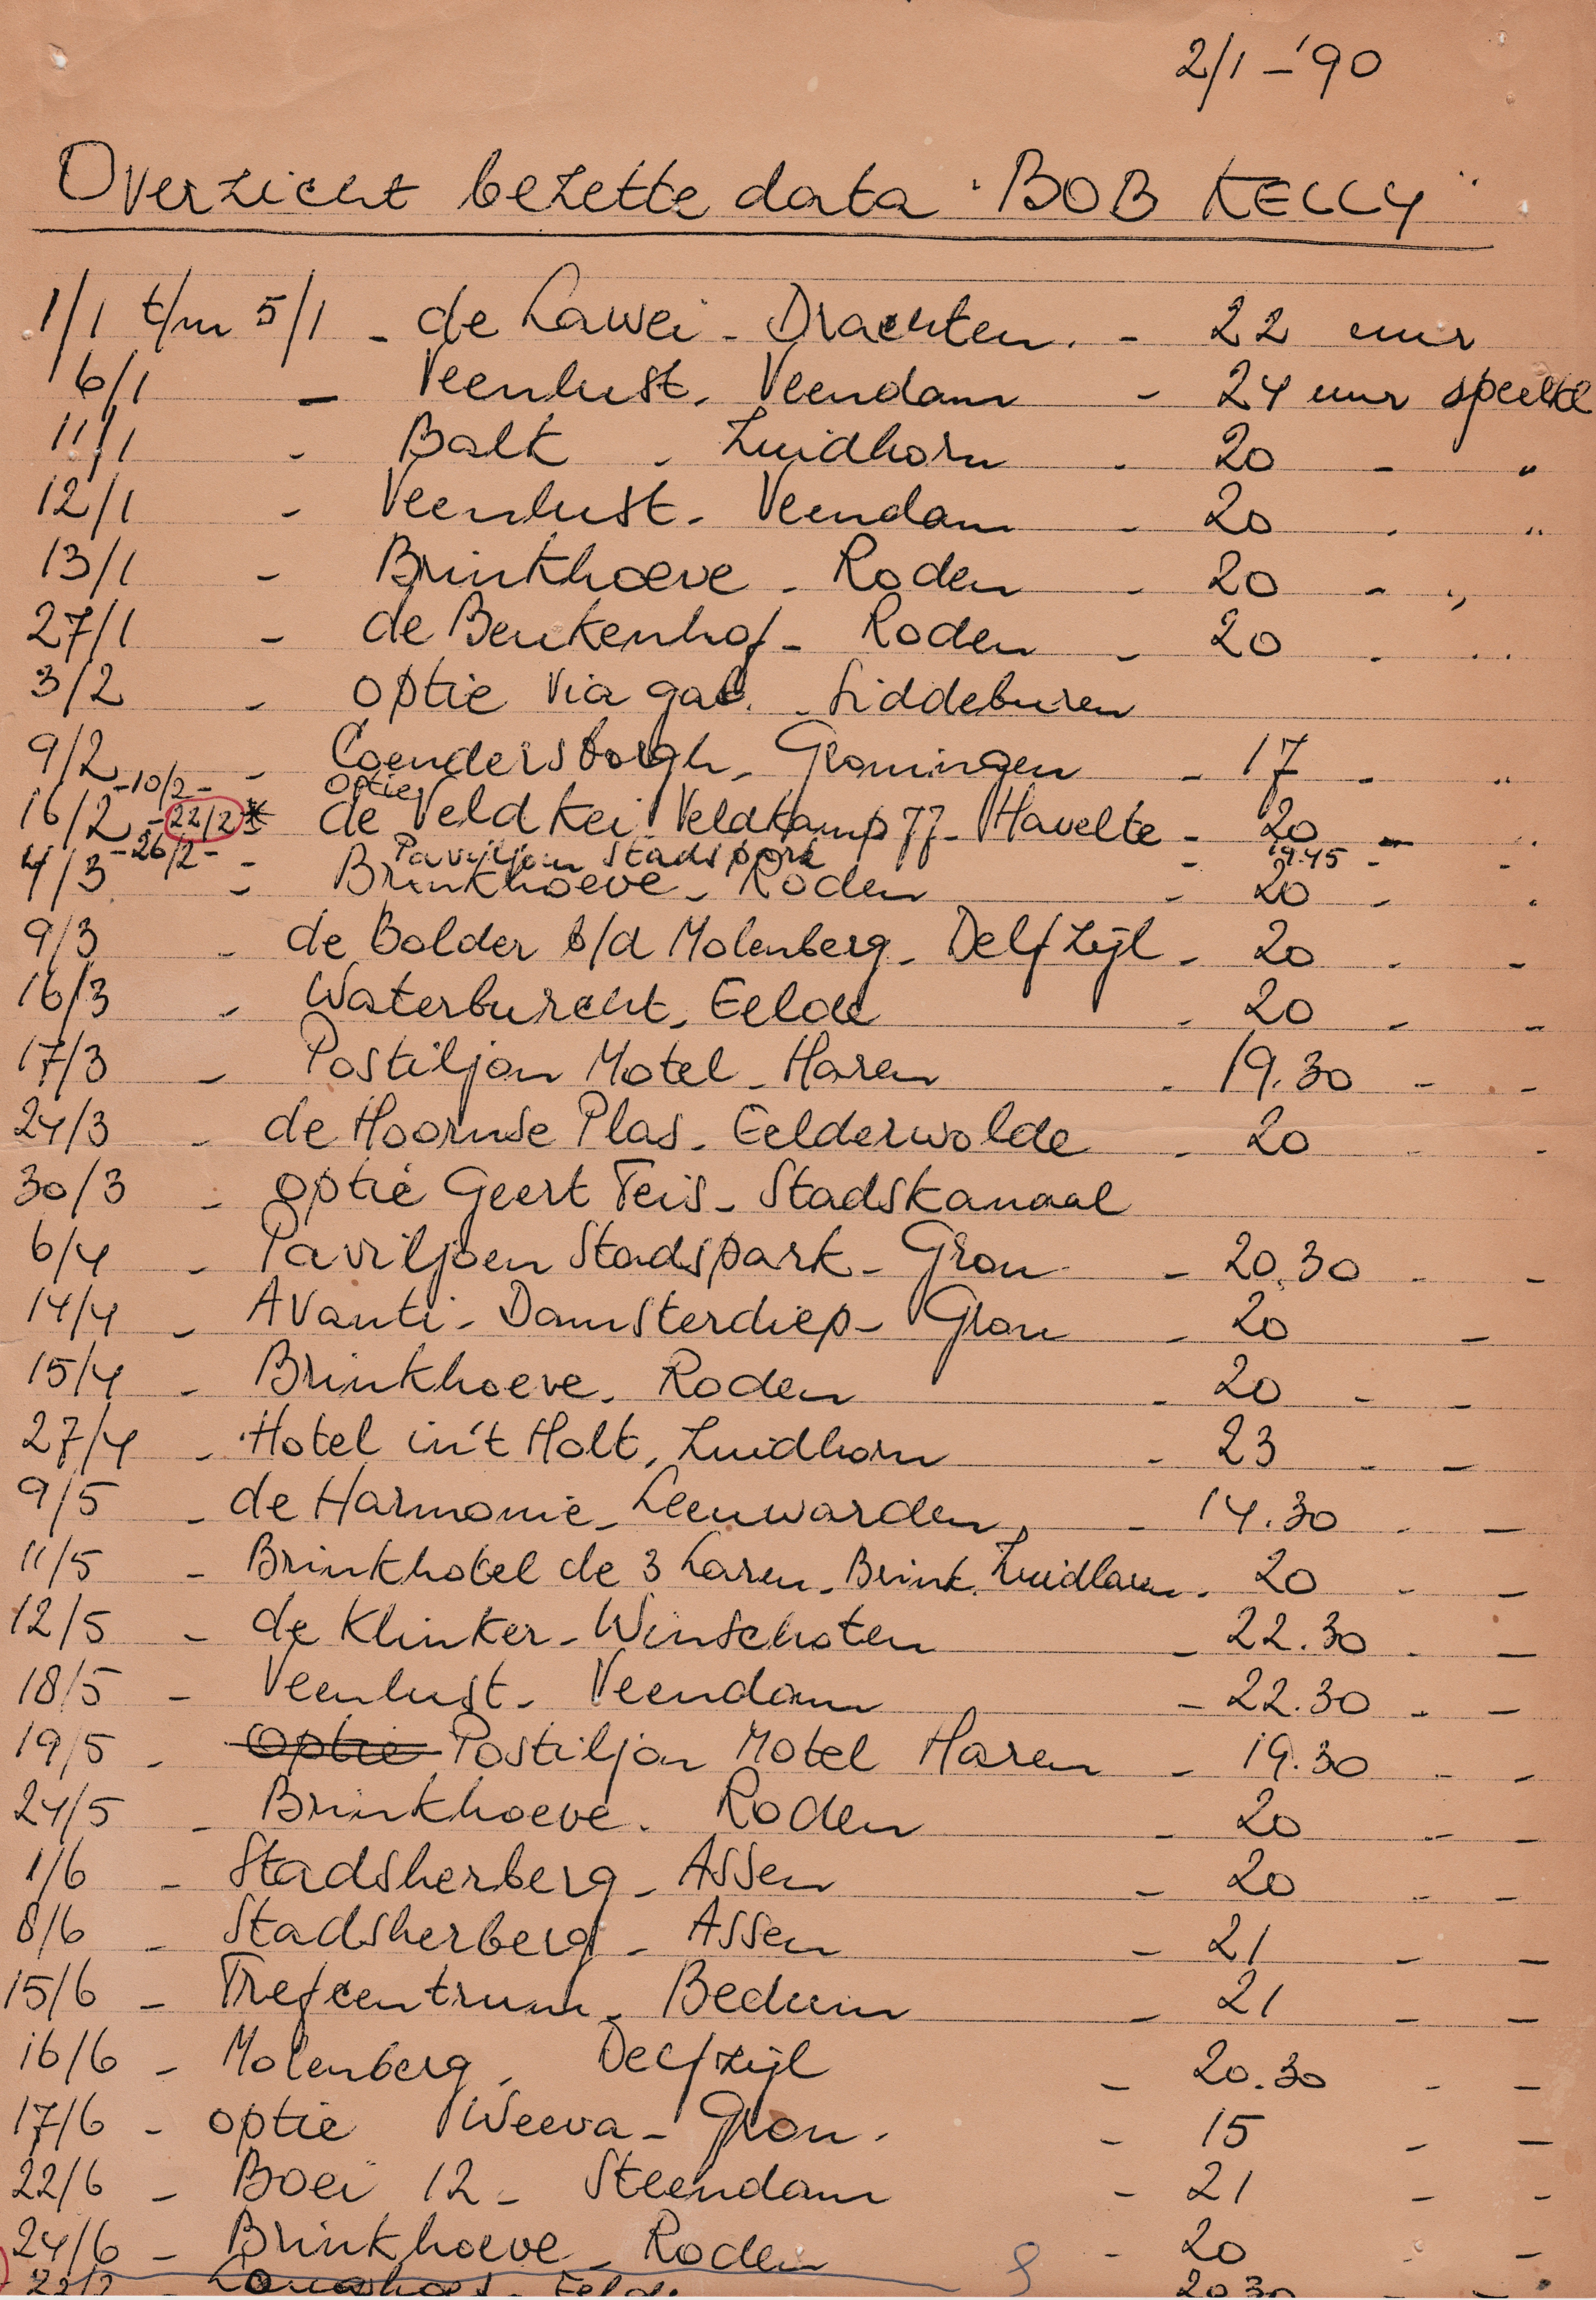 2/1 - '90
Overzicht bezette data "BOB KELLY"
1/1 t/m 5/1 - de Lawei - Drachten. - 22 uur
6/1 - Veenlust - Veendam - 24 uur speeltd
11/1 - Balk - Zuidhorn - 20 - "
12/1 - Veenlust - Veendam - 20 - "
13/1 - Brinkhoeve - Roden - 20 - "
27/1 - de Beukenhof - Roden - 20 - "
3/2 - optie via gab. - Siddeburen
9/2 - Coendersborgh - Groningen - 17 - "
-10/2- optie
16/2 - 22/2 * de Veldkei - Veldkamp 77 - Havelte - 20 - "
-26/2- - Paviljoen Stadspark - 19.45 - -
4/3 - Brinkhoeve - Roden - 20 - "
9/3 - de Bolder b/d Molenberg - Delfzijl - 20 - -
16/3 - Waterburcht - Eelde - 20 - -
17/3 - Postiljon Motel - Haren - 19.30 - -
24/3 - de Hoornse Plas - Eelderwolde - 20 - -
30/3 - optie Geert Teis - Stadskanaal
6/4 - Paviljoen Stadspark - Gron - 20.30 - -
14/4 - Avanti - Damsterdiep - Gron - 20 -
15/4 - Brinkhoeve - Roden - 20 - -
27/4 - Hotel in't Holt, Zuidhorn - 23 - -
9/5 - de Harmonie - Leeuwarden, - 14.30 - -
11/5 - Brinkhotel de 3 Laren - Brink. Zuidlaren - 20 - -
12/5 - de Klinker - Winschoten - 22.30 - -
18/5 - Veenlust - Veendam - 22.30 - -
19/5 - optie Postiljon Motel Haren - 19.30 - -
24/5 - Brinkhoeve - Roden - 20 - -
1/6 - Stadsherberg - Assen - 20 - -
8/6 - Stadsherberg - Assen - 21 - -
15/6 - Trefcentrum - Bedum - 21 - -
16/6 - Molenberg - Delfzijl - 20.30 - -
17/6 - optie Weeva - Gron. - 15 - -
22/6 - Boei 12 - Steendam - 21 - -
24/6 - Brinkhoeve - Roden - 20 - -
20.30